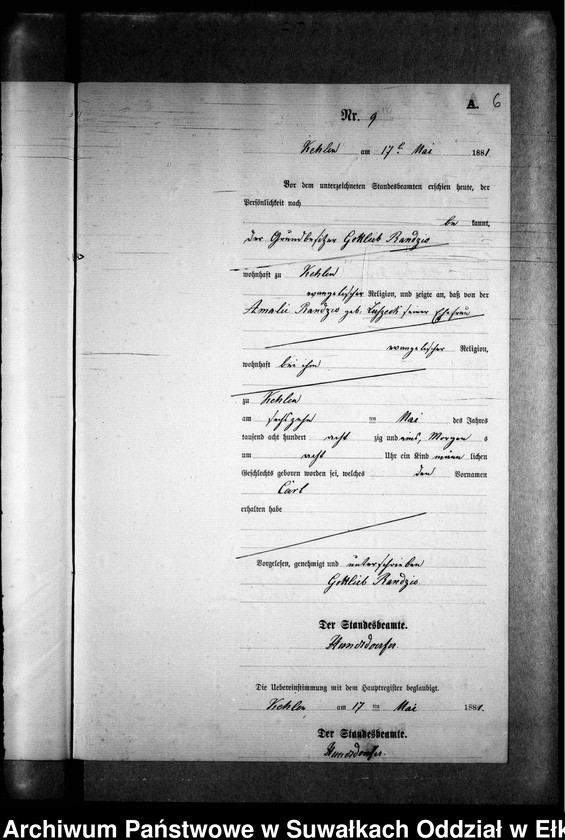 A. 6
Nr. 9
Kehlen am 17t Mai 1881.
Vor dem unterzeichneten Standesbeamten erschien heute, der
Persönlichkeit nach
be kannt,
der Grundbesitzer Gottlieb Randzio
wohnhaft zu Kehlen
evangelischer Religion, und zeigte an, daß von der
Amalie Randzio geb. seiner Ehefrau
evangelischer Religion,
wohnhaft bei ihm
zu Kehlen
am sechszehn ten Mai des Jahres
tausend acht hundert acht zig und eins, Morgen s
um acht Uhr ein Kind männ lichen
Geschlechts geboren worden sei, welches den Vornamen
Carl
erhalten habe
Vorgelesen, genehmigt und unterschrieben
Gottlieb Randzio
Der Standesbeamte.
Hundsdoerfer.
Die Uebereinstimmung mit dem Hauptregister beglaubigt.
Kehlen am 17 ten Mai 1881.
Der Standesbeamte.
Hundsdoerfer.
Archiwum Państwowe w Suwałkach Oddział w Ełk